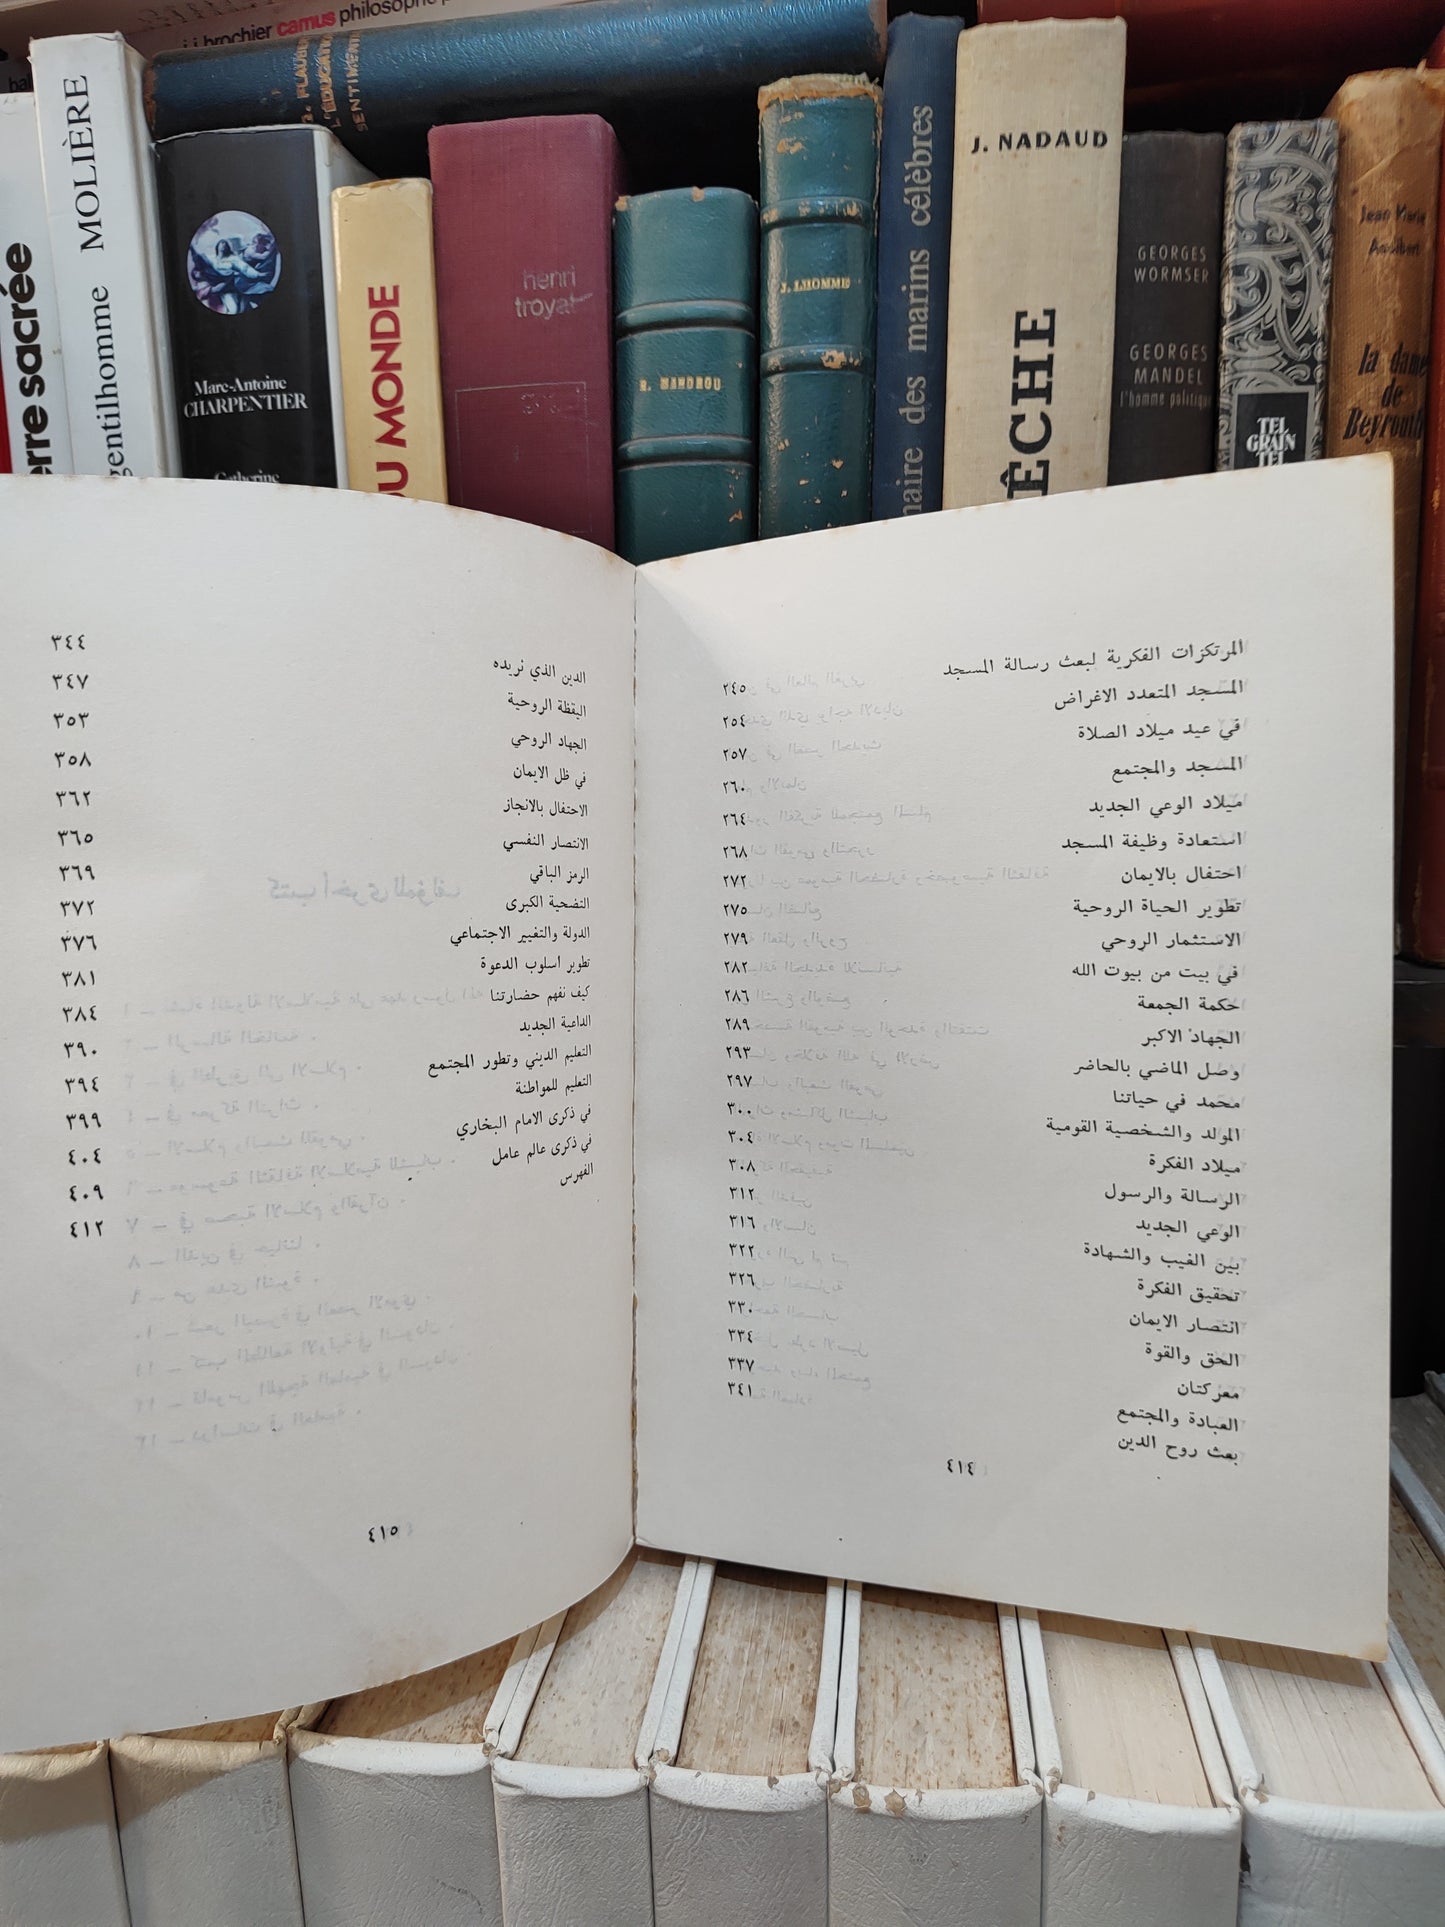 j.j. brochier camus philosophe p
G. FLAUBERT
L'ÉDUCATION
SENTIMENTALE
erre sacrée
MOLIÈRE
gentilhomme
Marc-Antoine
CHARPENTIER
Catherine
DU MONDE
henri
troyat
R. MANDROU
J. LHOMME
naire des marins célèbres
J. NADAUD
ÊCHE
GEORGES
WORMSER
GEORGES
MANDEL
l'homme politique
TEL
GRAIN
TEL
Jean Marie
la dame
de
Beyrouth
المرتكزات الفكرية لبعث رسالة المسجد ٢٤٥
المسجد المتعدد الاغراض ٢٥٤
في عيد ميلاد الصلاة ٢٥٧
المسجد والمجتمع ٢٦٠
ميلاد الوعي الجديد ٢٦٤
استعادة وظيفة المسجد ٢٦٨
احتفال بالايمان ٢٧٢
تطوير الحياة الروحية ٢٧٥
الاستثمار الروحي ٢٧٩
في بيت من بيوت الله ٢٨٢
حكمة الجمعة ٢٨٦
الجهاد الاكبر ٢٨٩
وصل الماضي بالحاضر ٢٩٣
محمد في حياتنا ٢٩٧
المولد والشخصية القومية ٣٠٠
ميلاد الفكرة ٣٠٤
الرسالة والرسول ٣٠٨
الوعي الجديد ٣١٢
بين الغيب والشهادة ٣١٦
تحقيق الفكرة ٣٢٢
انتصار الايمان ٣٢٦
الحق والقوة ٣٣٠
معركتان ٣٣٤
العبادة والمجتمع ٣٣٧
بعث روح الدين ٣٤١
٤١٤
الدين الذي نريده ٣٤٤
اليقظة الروحية ٣٤٧
الجهاد الروحي ٣٥٣
في ظل الايمان ٣٥٨
الاحتفال بالانجاز ٣٦٢
الانتصار النفسي ٣٦٥
الرمز الباقي ٣٦٩
التضحية الكبرى ٣٧٢
الدولة والتغيير الاجتماعي ٣٧٦
تطوير اسلوب الدعوة ٣٨١
كيف نفهم حضارتنا ٣٨٤
الداعية الجديد ٣٩٠
التعليم الديني وتطور المجتمع ٣٩٤
التعليم للمواطنة ٣٩٩
في ذكرى الامام البخاري ٤٠٤
في ذكرى عالم عامل ٤٠٩
الفهرس ٤١٢
٤١٥